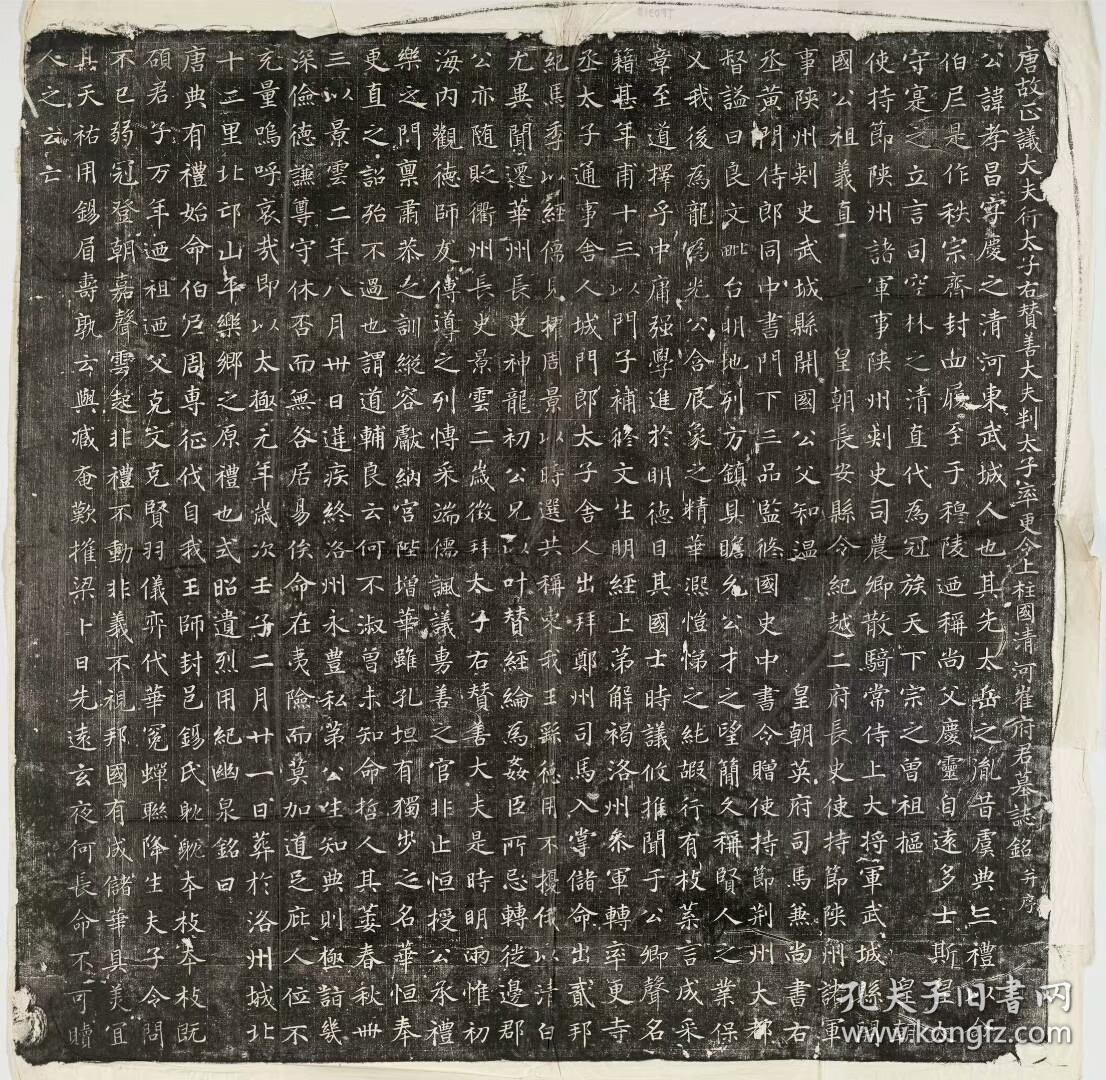 唐故正議大夫行太子右贊善大夫判太子率更令上柱國清河崔府君墓誌銘并序
公諱孝昌字慶之清河東武城人也其先太岳之胤昔虞典三禮
伯尼是作秩宗齊封血屐至于穆陵迺稱尚父慶靈自遠多士斯
守寔之立言司空林之清直代為冠族天下宗之曾祖樞
使持節陝州諸軍事陝州刺史司農卿散騎常侍上大將軍武城縣
國公祖義直 皇朝長安縣令紀越二府長史使持節陝州諸軍
事陝州刺史武城縣開國公父知溫 皇朝英府司馬兼尚書右
丞黃門侍郎同中書門下三品監脩國史中書令贈使持節荊州大都
督謚曰良文毗台明地列方鎮具瞻允公才之望簡久稱賢人之業保
乂我後為龍為光公含辰象之精華漑愷悌之純嘏行有枝葉言成采
章至道擇乎中庸强學進於明德目其國士時議攸推聞于公卿聲名
籍甚年甫十三以門子補脩文生明經上第解褐洛州叅軍轉率更寺
丞太子通事舍人城門郎太子舍人出拜鄭州司馬入掌儲命出貳邦
紀馬季以經儒見擢周景以時選共稱來我王縣德用不擾俄以清白
尤異聞遷華州長史神龍初公兄以叶贊經綸為姦臣所忌轉徙邊郡
公亦隨貶衢州長史景雲二歲徵拜太子右贊善大夫是時明兩惟初
海內觀德師友傅導之列慱采端儒諷議勇善之官非止恒授公承禮
樂之門禀肅恭之訓縱容獻納宮陛增華雖孔坦有獨步之名華恒奉
更直之詔殆不過也謂道輔良云何不淑曾未知命哲人其萎春秋卌
三以景雲二年八月卅日遘疾終洛州永豊私第公生知典則極詣幾
深儉德謙尊守休否而無咎居易俟命在夷險而莫加道足庇人位不
充量嗚呼哀哉即以太極元年歲次壬子二月廿一日葬於洛州城北
十三里北邙山平樂鄉之原禮也式昭遺烈用紀幽泉銘曰
唐典有禮始命伯尼周專征伐自我王師封邑錫氏耽耽夲枝夲枝既
碩君子万年迺祖迺父克文克賢羽儀弈代華冕蟬聯降生夫子令問
不已弱冠登朝嘉聲雲起非禮不動非義不視邦國有成儲華具美宜
其天祐用錫眉壽孰云與臧奄歎摧梁卜日先遠玄夜何長命不可贖
人之云亡
孔夫子旧书网
www.kongfz.com